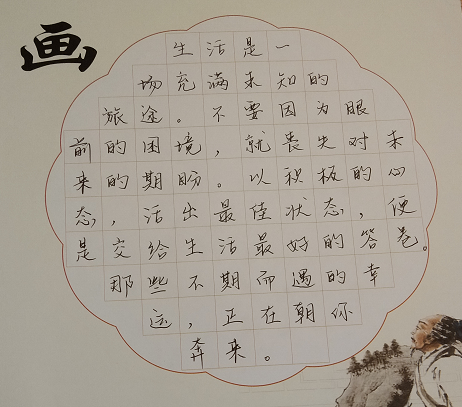 画
生活是一
场充满未知的
旅途。不要因为眼
前的困境，就丧失对未
来的期盼。以积极的心
态，活出最佳状态，便
是交给生活最好的答卷。
那些不期而遇的幸
运，正在朝你
奔来。